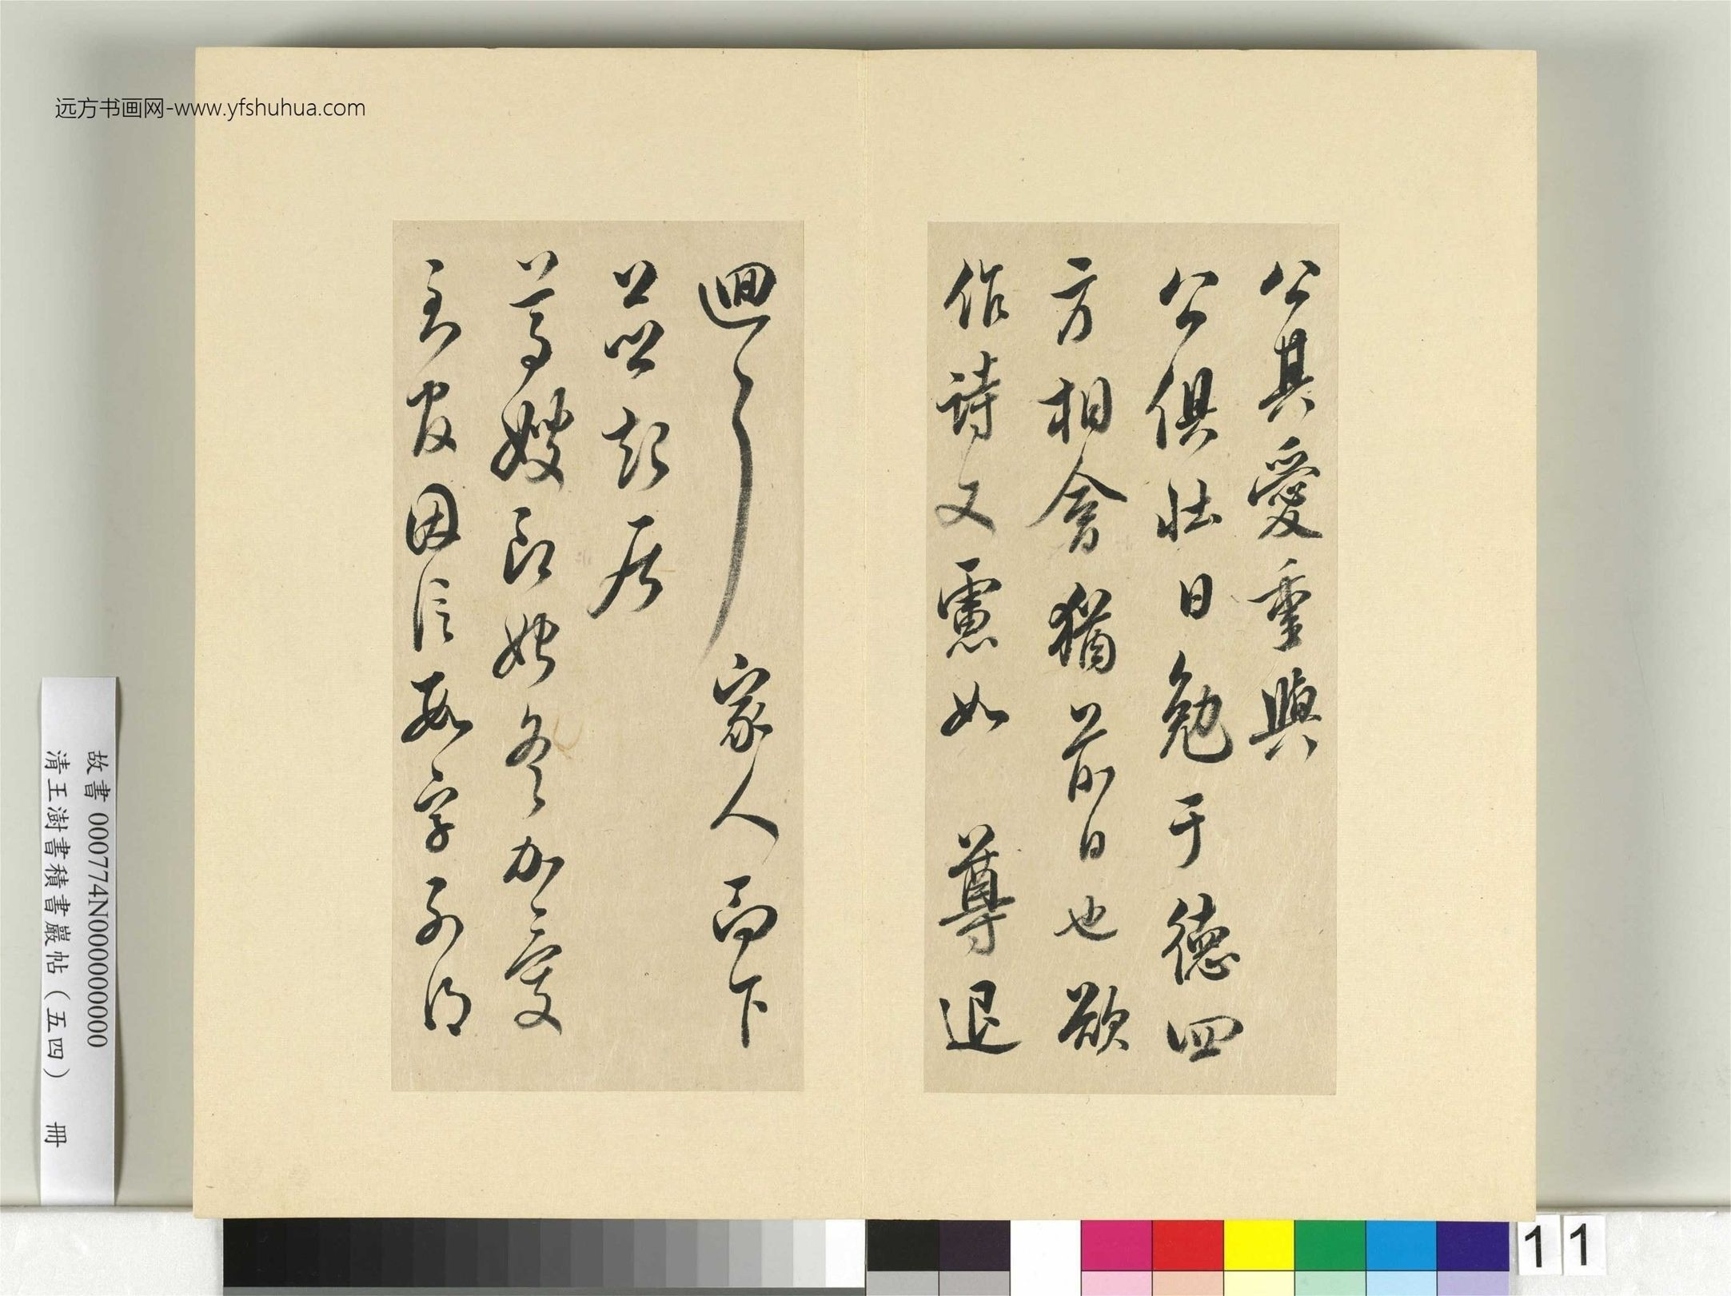 远方书画网-www.yfshuhua.com
公其愛重與
公俱壯日勉于德四
方相會猶前日也欲
作詩又慮如 尊退
迴之 家人而下
並起居
尊嫂郎娘各加愛
因信數字
故書 000774N000000000
清王澍書積書巖帖（五四） 冊
11